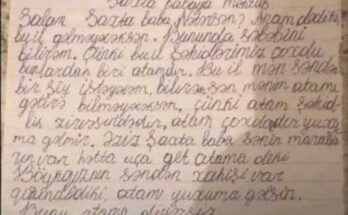 Şaxta babaya məktub
Salam Şaxta baba. Necəsən? Anam dedi ki,
bu il gəlməyəcəksən. Bununda səbəbini
bilirəm. Çünki bu il şəhidlərimiz çoxdu
bunlardan biri atamdır. Bu il mən səndən
bir şey istəyirəm, bilirsən mənim atamı
gətirə bilməyəcəksən, çünki atam şəhid-
lik zirvəsindədir, atam çoxdandır yuxu-
ma gəlmir. Əziz Şaxta baba sənin maralla-
rın var hətta uça get atama deki
səndən xahişi var
atam yuxuma gəlsin.
Bunu atama